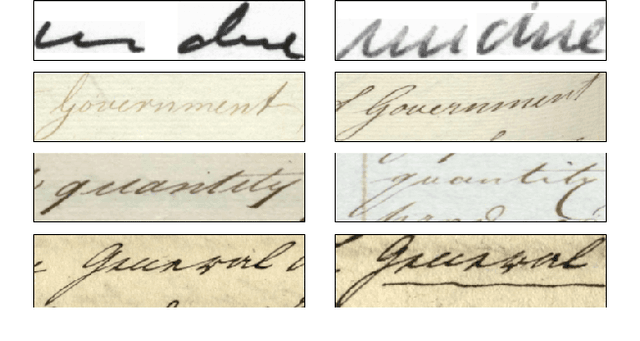 Government Government
quantity quantity
General General